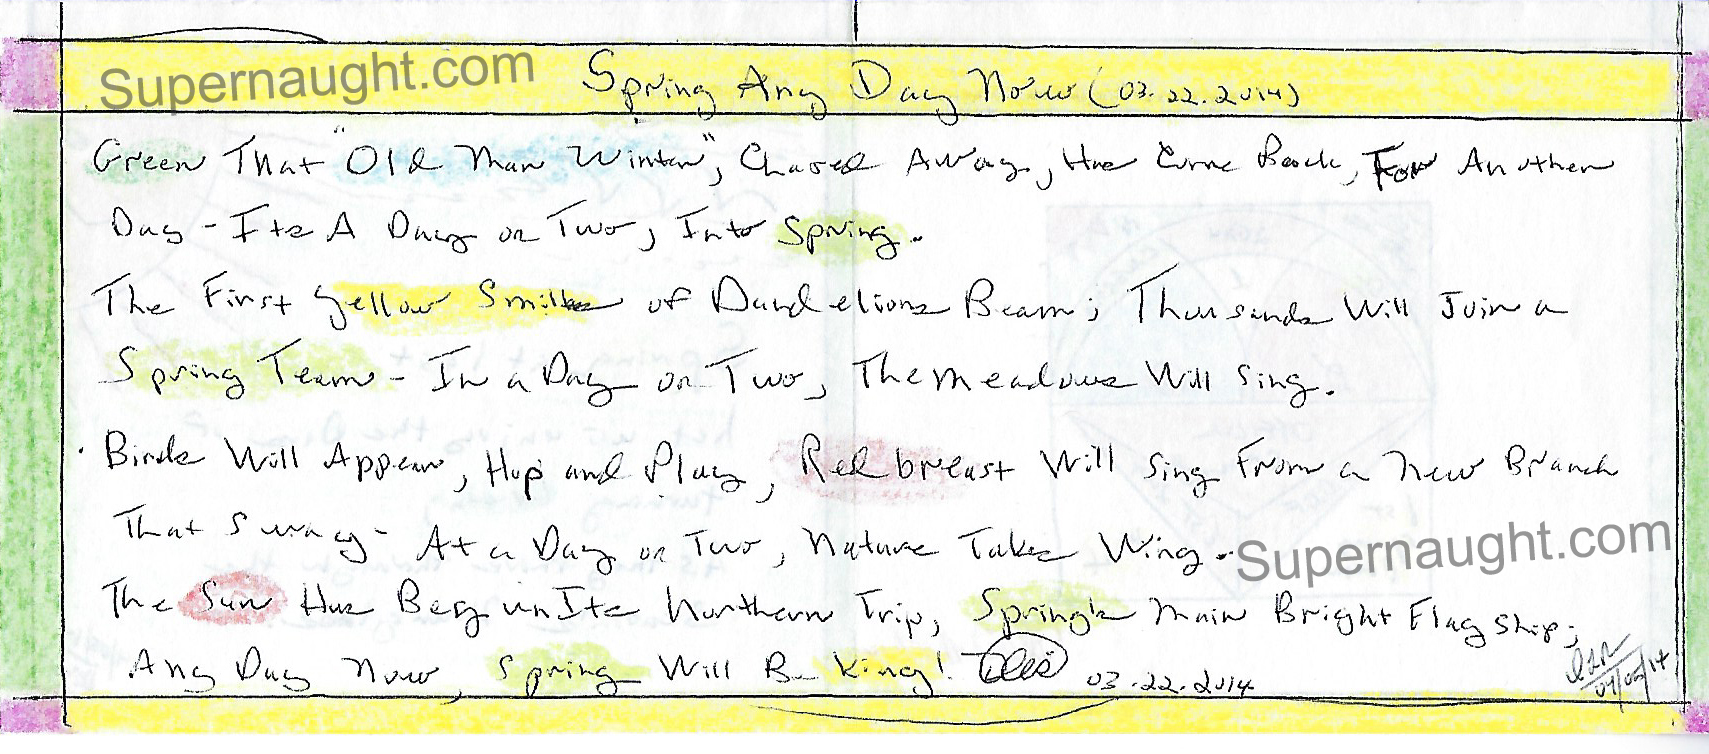 Supernaught.com
Spring Any Day Now (03.22.2014)
Green That "Old Man Winter", Chased Away, Has Come Back, For Another
Day - Its A Day or Two, Into Spring.
The First Yellow Smiles of Dandelions Beam; Thousands Will Join a
Spring Team - In a Day or Two, The Meadows Will Sing.
Birds Will Appear, Hop and Play, Redbreast Will Sing From a New Branch
That Sway - At a Day or Two, Nature Takes Wing.
Supernaught.com
The Sun Has Begun Its Northern Trip, Spring's Main Bright Flag Ship;
Any Day Now, Spring Will Be King! 03.22.2014